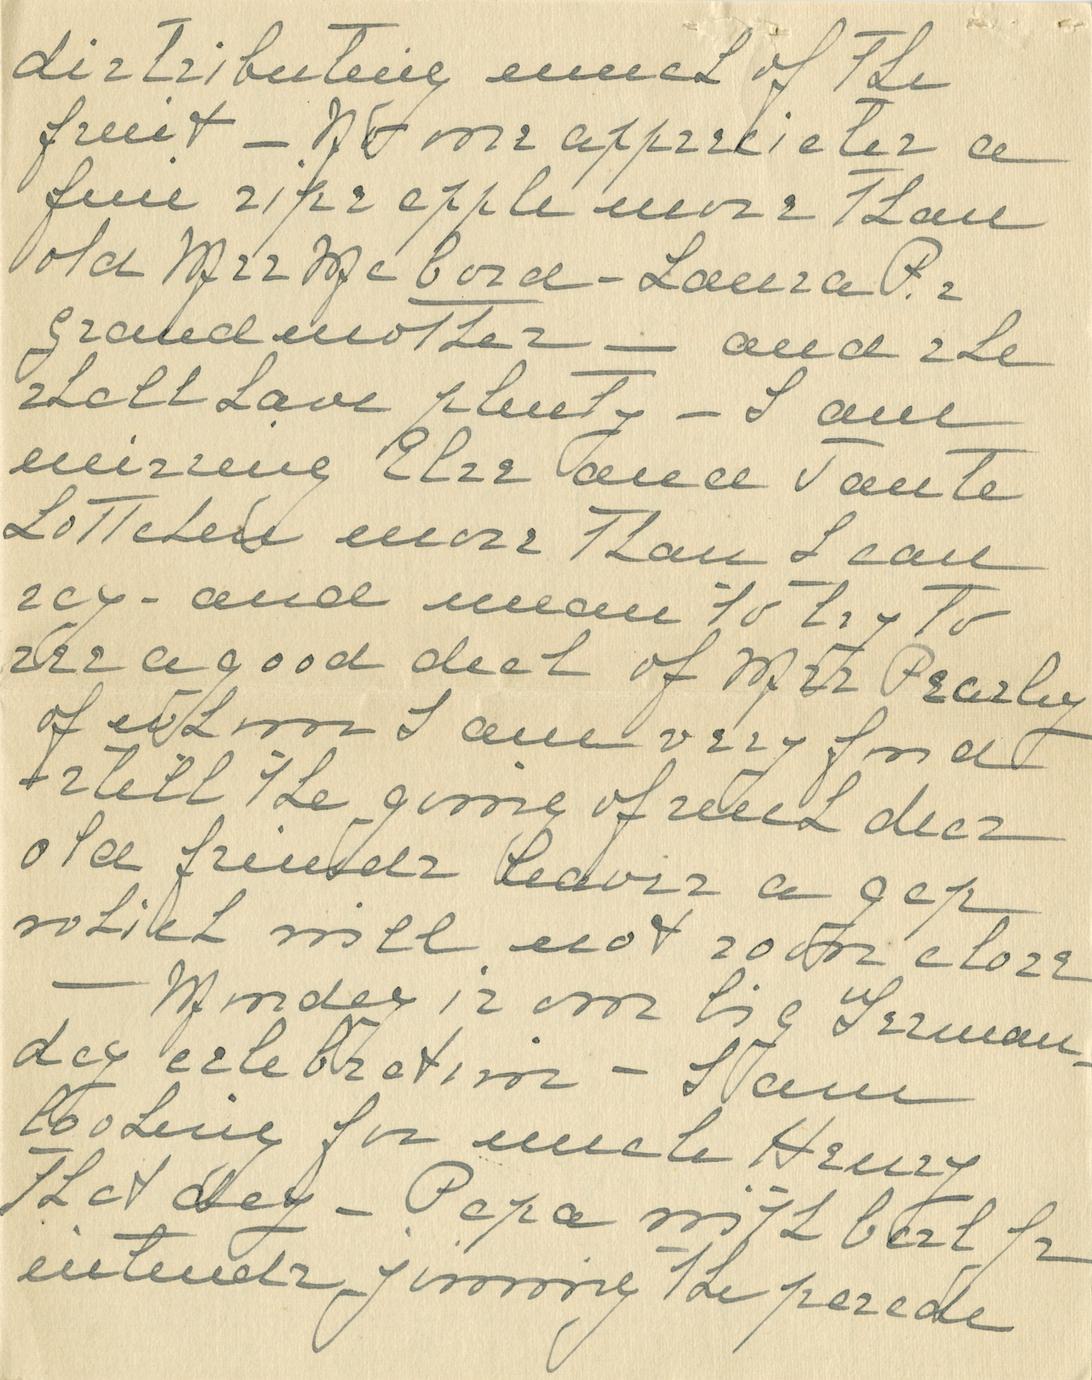 distributing much of the
fruit – No one appreciates a
fine ripe apple more than
old Mrs McCord – Laura P.s
grandmother — and she
shall have plenty – I am
missing Else and Tante
Lottchen more than I can
say – and mean to try to
see a good deal of Mrs Pearley
of whom I am very fond
still the going of such dear
old friends leaves a gap
which will not soon close
— Monday is our big German-
day celebration – I am
looking for uncle Henry
that day – Papa with beet fr
intends joining the parade